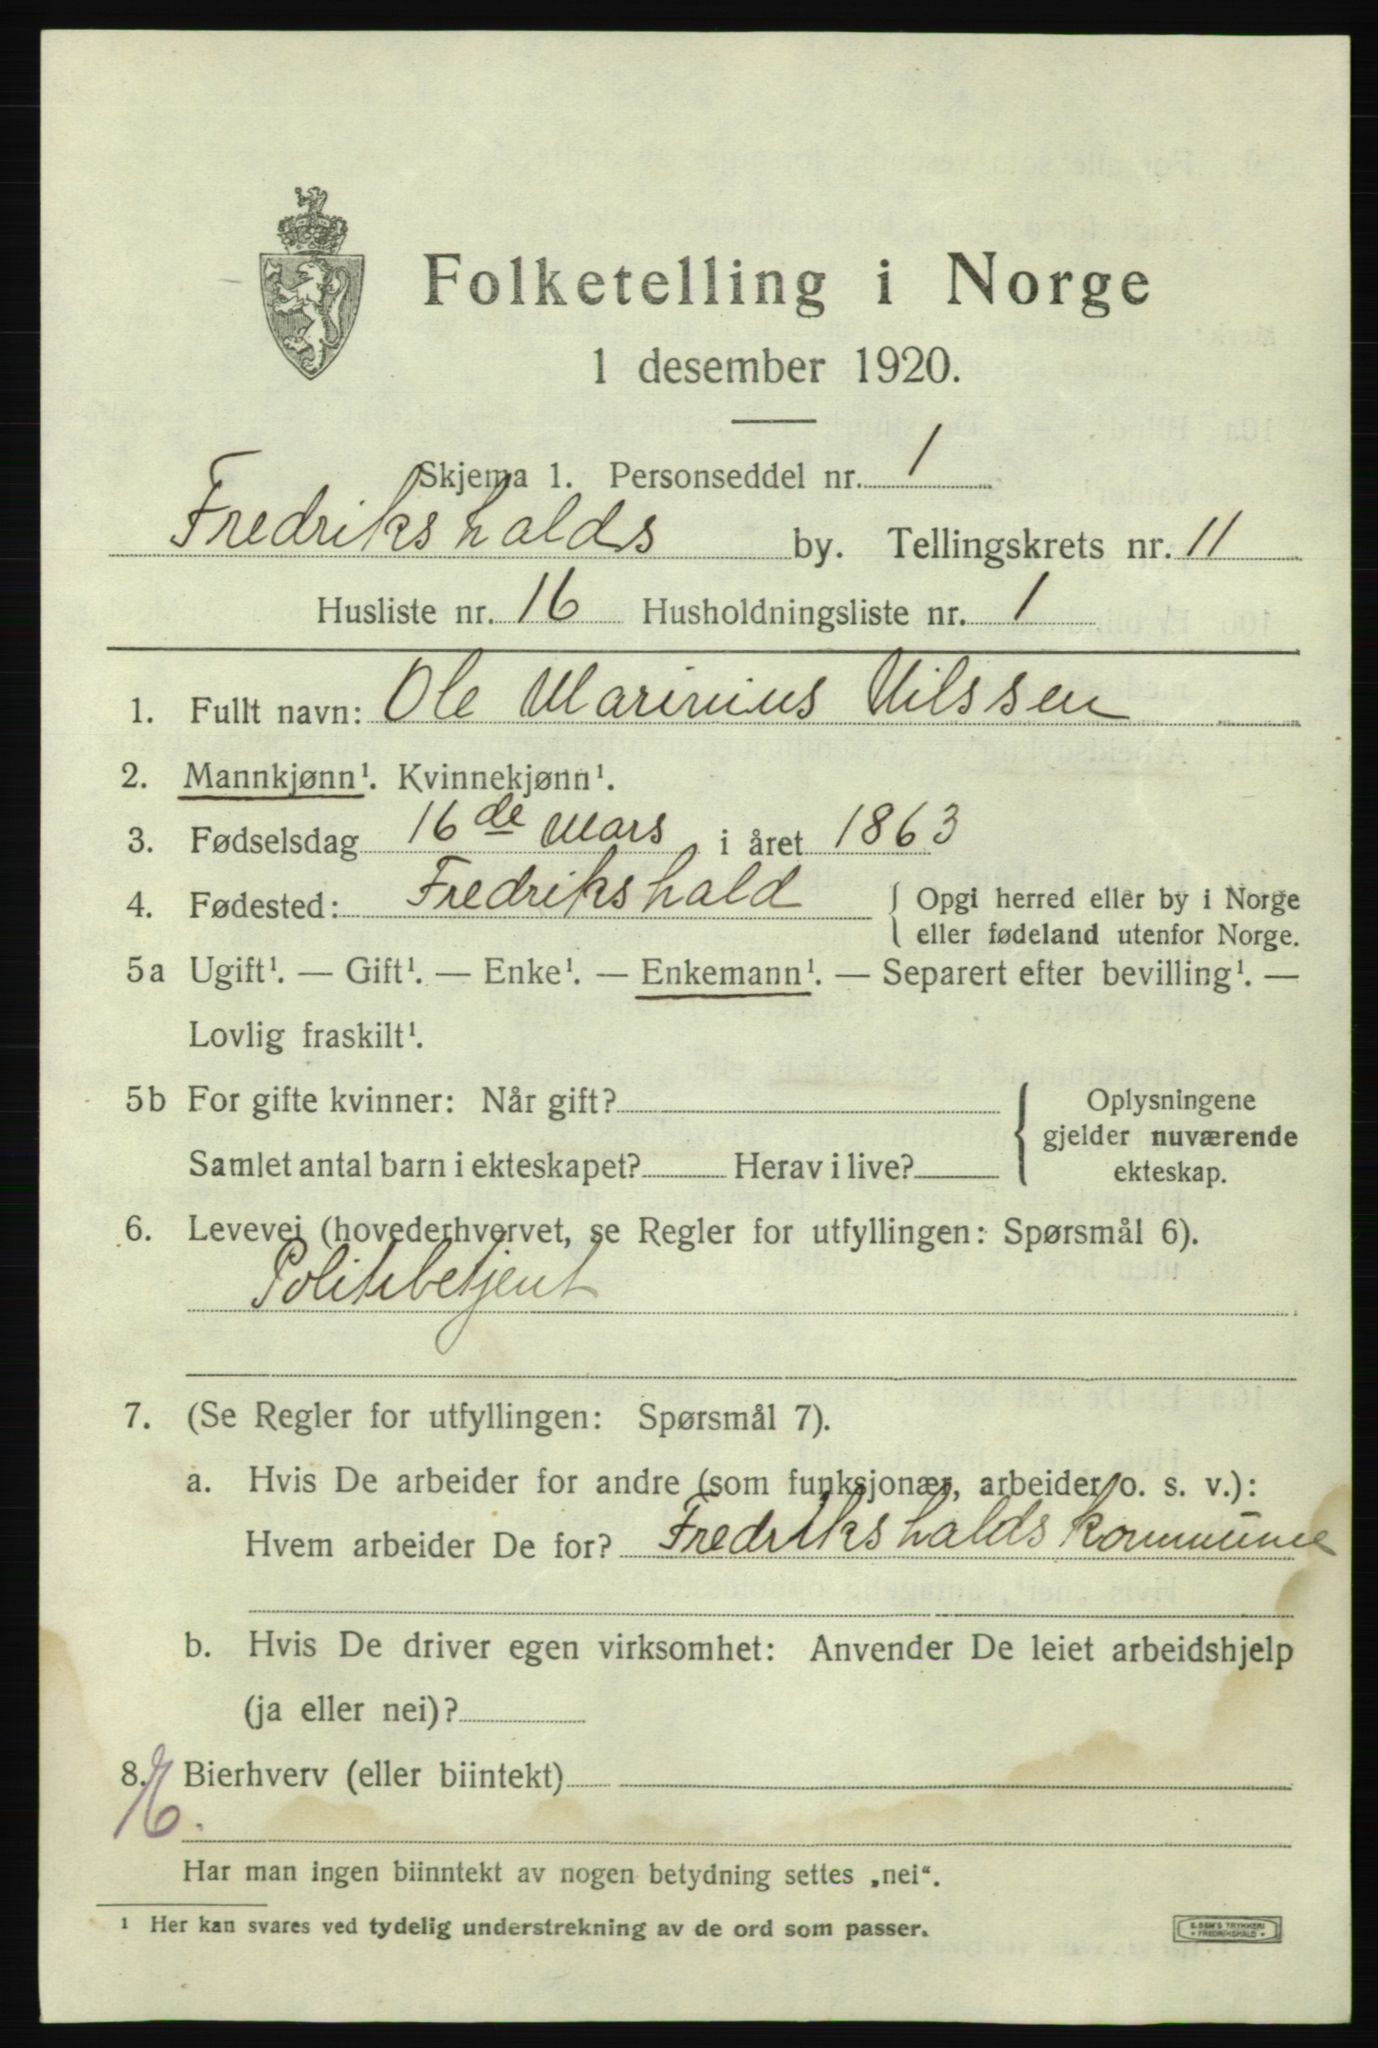 Folketelling i Norge
1 desember 1920.
Skjema 1. Personseddel nr. 1
Fredrikshalds by. Tellingskrets nr. 11
Husliste nr. 16 Husholdningsliste nr. 1
1. Fullt navn: Ole Marinius Nilssen
2. Mannkjønn¹. Kvinnekjønn¹.
3. Fødselsdag 16de Mars i året 1863
4. Fødested: Fredrikshald { Opgi herred eller by i Norge
eller fødeland utenfor Norge.
5a Ugift¹. — Gift¹. — Enke¹. — Enkemann¹. — Separert efter bevilling¹. —
Lovlig fraskilt¹.
5b For gifte kvinner: Når gift? { Oplysningene
gjelder nuværende
Samlet antal barn i ekteskapet? Herav i live?
ekteskap.
6. Levevei (hovederhvervet, se Regler for utfyllingen: Spørsmål 6).
Politibetjent
7. (Se Regler for utfyllingen: Spørsmål 7).
a. Hvis De arbeider for andre (som funksjonær, arbeider o. s. v.):
Hvem arbeider De for? Fredrikshalds kommune
b. Hvis De driver egen virksomhet: Anvender De leiet arbeidshjelp
(ja eller nei)?
8. Bierhverv (eller biintekt)
Har man ingen biinntekt av nogen betydning settes „nei“.
¹ Her kan svares ved tydelig understrekning av de ord som passer.
E. SEM'S TRYKKERI
• FREDRIKSHALD •